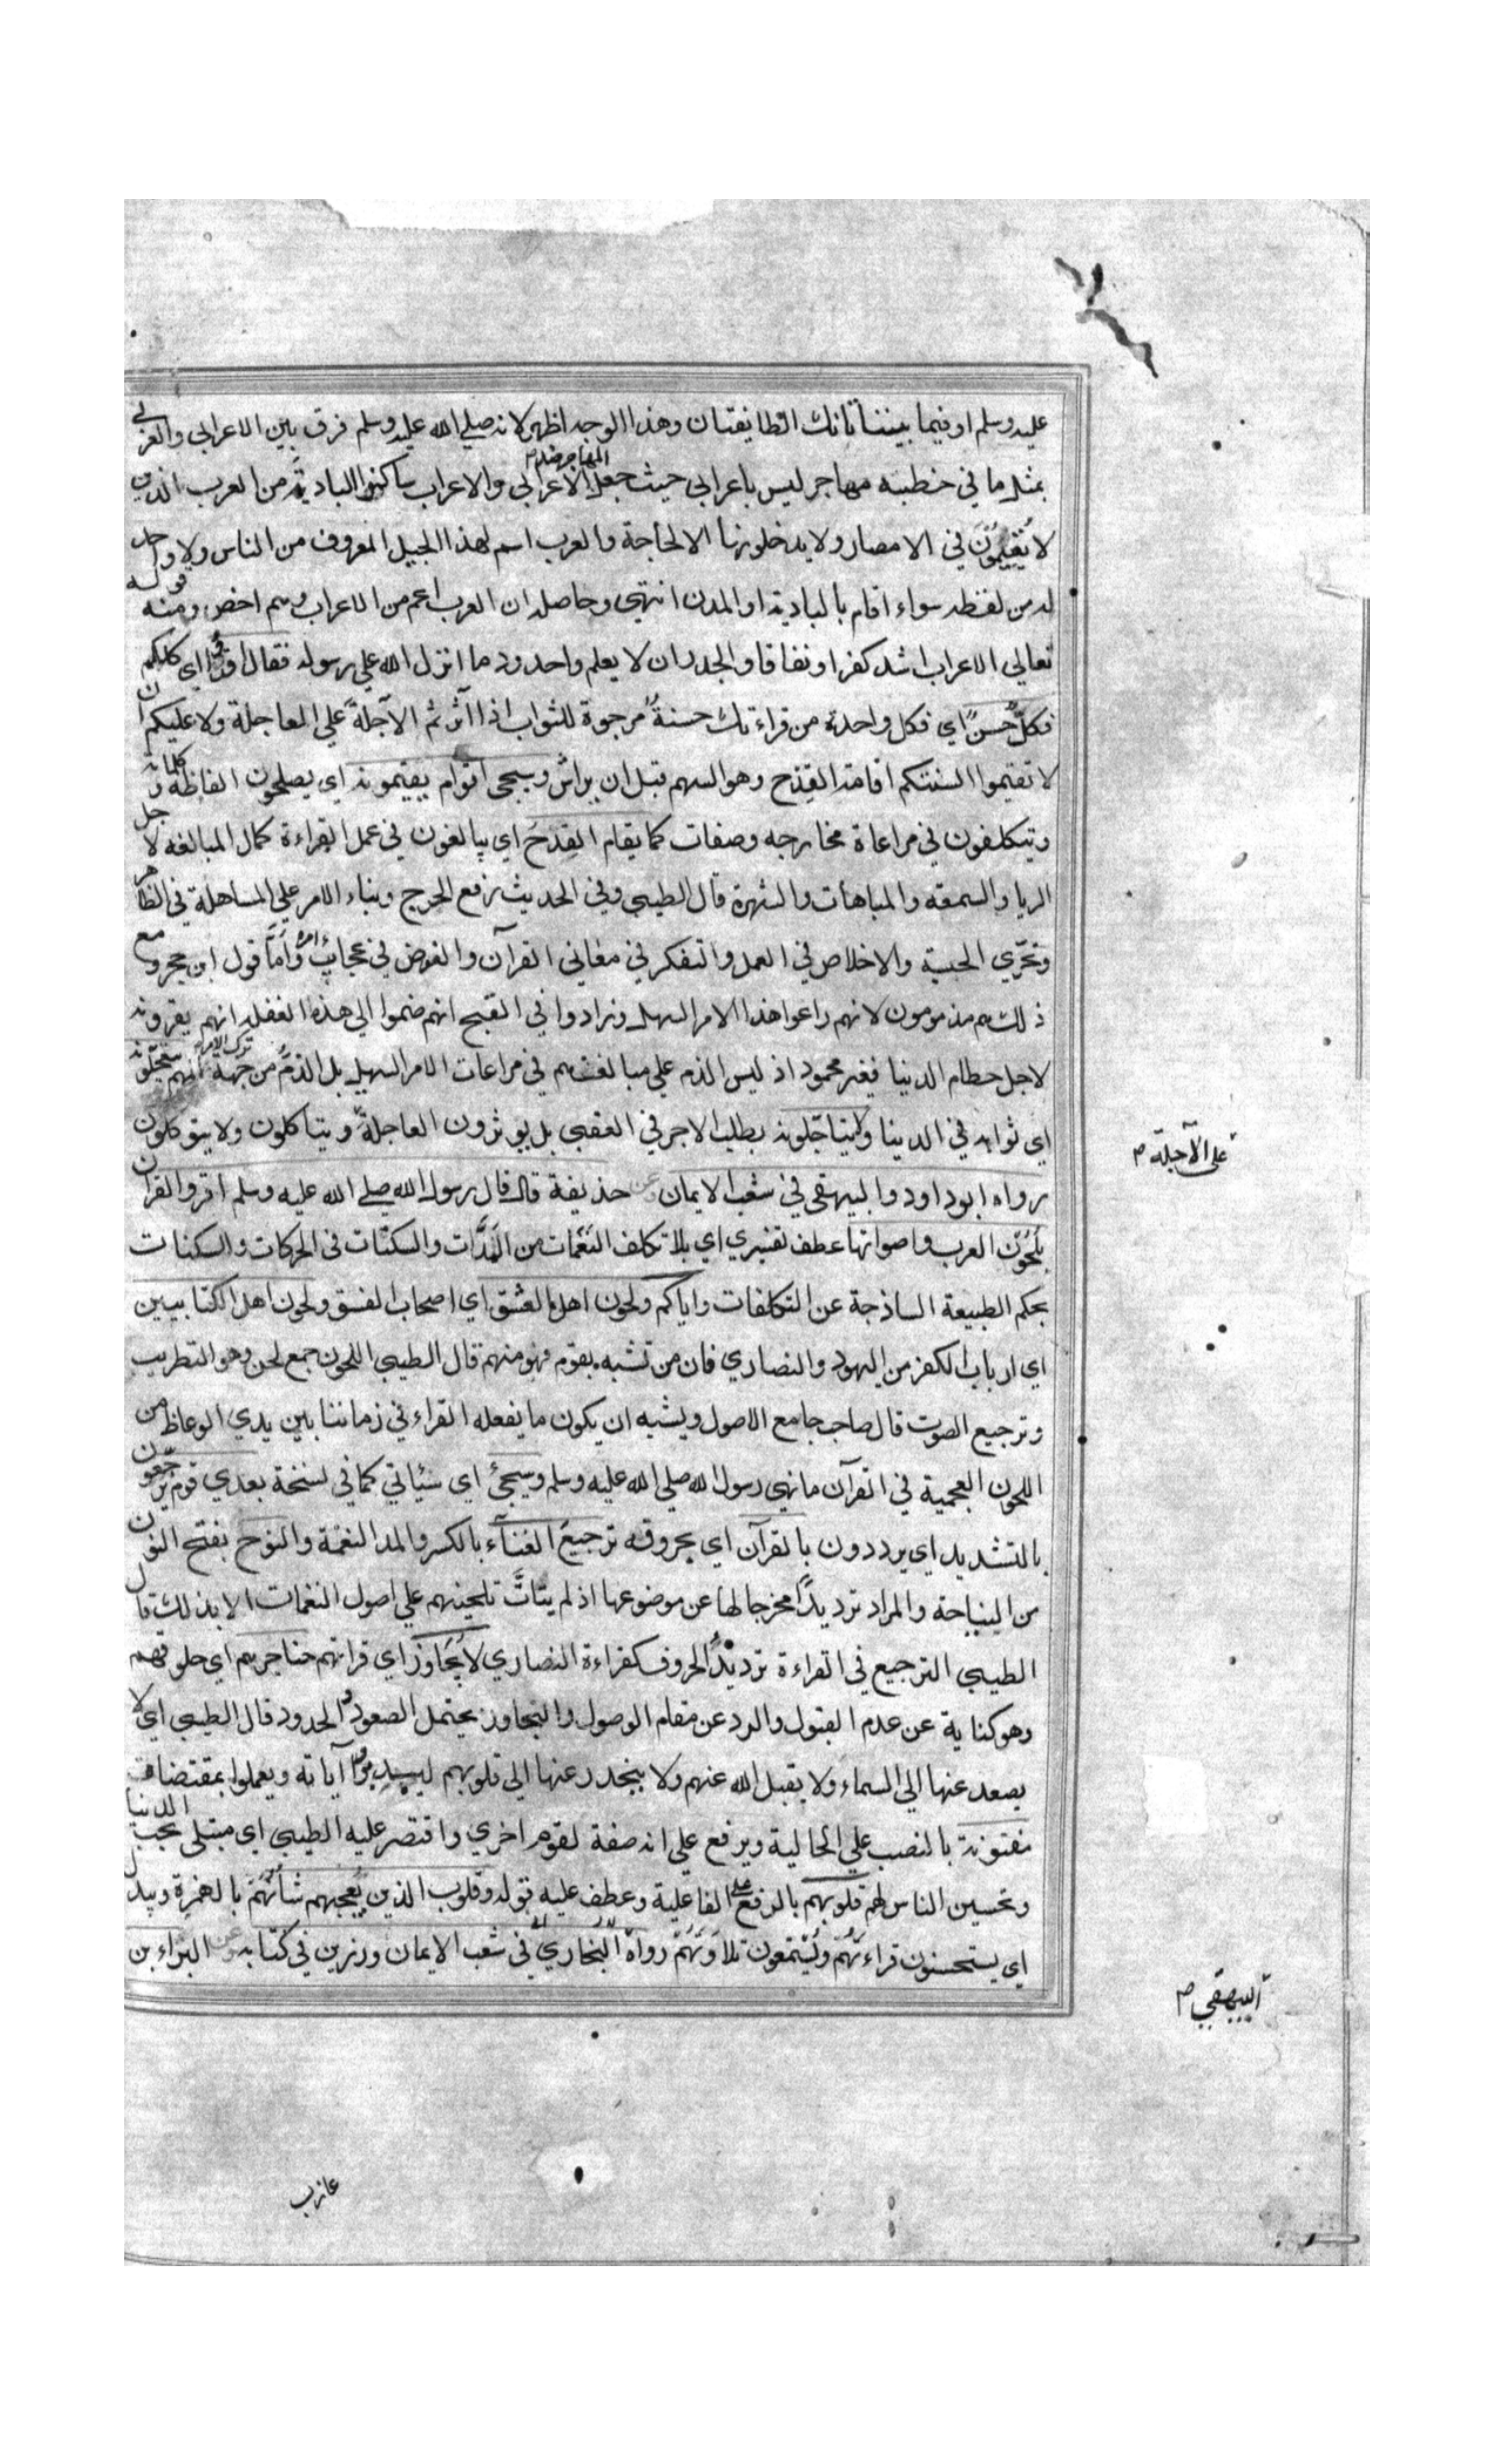 عليه وسلم او فيما بيننا تانك الطايفتان وهذا الوجه اظهر لانه صلي الله عليه وسلم فرق بين الاعرابي والعربي
بمثل ما في خطبته مهاجر ليس باعرابي حيث جعل المهاجر ضد الاعرابي والاعراب ساكنوا البادية من العرب الذين
لا يُقيمُون في الامصار ولا يدخلونها الا لحاجة والعرب اسم لهذا الجيل المعروف من الناس ولا واحد
له من لفظه سواء اقام بالبادية او المدن انتهي وحاصله ان العرب اعم من الاعراب وهم اخص ومنه قوله
تعالي الاعراب اشد كفرا ونفاقا واجدر ان لا يعلموا حدود ما انزل الله علي رسوله فقال اقرؤا اي كلكم
فكلٌّ حُسنٌ اي فكل واحدة من قراءتك حسنةٌ مرجوة للثواب اذا اثرتم الآجلة علي العاجلة ولا عليكم ان
لا تقيموا السنتكم اقامة القدح وهو السهم قبل ان يراش وسيجي اقوام يقيمونه اي يصلحون الفاظه وكلماته
ويتكلفون في مراعاة مخارجه وصفاته كما يقام القِدحُ اي يبالغون في عمل القراءة كمال المبالغة لاجل
الريا والسمعة والمباهات والشهرة قال الطيبي وفي الحديث رفع الحرج وبناء الامر علي المساهلة في الظاهر
وتحرّي الحسبة والاخلاص في العمل والتفكر في معاني القرآن والغوض في عجائب امره وأمّا قول ابن حجر ومع
ذلك هم مذمومون لانهم راعوا هذا الامر السهل وزادوا في القبح انهم ضموا الي هذه الغفلة انهم يقرونه
لاجل حطام الدنيا فغير محمود اذ ليس الذم علي مبالغتهم في مراعات الامر السهيل بل الذمُّ من جهة ترك الامر انهم يتعجّلونه
اي ثوابه في الدينا ولا يتأجّلونه بطلب الاجر في العقبي بل يوثرون العاجلة ويتاكلون ولا يتوكلون
رواه ابو داود والبيهقي في شعب الايمان وعن حذيفة قال قال رسول الله صلي الله عليه وسلم اقروا القران
بلُحُونِ العرب واصواتها عطف تفسيري اي بلا تكلف النَغَمات من المَدَّات والسكتات في الحركات والسكنات
بحكم الطبيعة الساذجة عن التكلفات واياكم ولحون اهل العشق اي اصحاب الفسق ولحون اهل الكتابيين
اي ارباب الكفر من اليهود والنصاري فان من تشبه بقوم فهو منهم قال الطيبي اللحون جمع لحن وهو التطريب
وترجيع الصوت قال صاحب جامع الاصول ويشبه ان يكون ما يفعله القراء في زماننا بين يدي الوعاظ من
اللحون العجمية في القرآن ما نهي رسول الله صلي الله عليه وسلم وسيجئ اي سيأتي كما في نسخة بعدي قوم يرجّعون
بالتشديد اي يرددون بالقرآن اي بحروفه ترجيعَ الغناء بالكسر والمد النغمة والنوح بفتح النون
من النياحة والمراد ترديدًا مخرجا لها عن موضوعها اذ لم يتاتّ تلحينهم علي اصول النغمات الا بذلك قال
الطيبي الترجيع في القراءة ترديدُ الحروف كقراءة النصاري لا يُجَاوز اي قراتهم حناجرهم اي حلوقهم
وهو كناية عن عدم القبول والرد عن مقام الوصول والتجاوز يحتمل الصعود والحدور قال الطيبي اي لا
يصعد عنها الي السماء ولا يقبل الله عنهم ولا ينحدر عنها الي قلوبهم ليتدبروا آياته ويعملوا بمقتضاه
مفتونة بالنصب علي الحالية ويرفع علي انه صفة لقوم اخري واقتصر عليه الطيبي اي مبتلي بحب الدنيا
وتحسين الناس لهم قلوبهم بالرفع علي الفاعلية وعطف عليه قوله وقلوب الذين يُعجبهم شأنُهُمْ بالهمزة ويبدل
اي يستحسنون قراءتهُمْ ويَسْتَمعون تلاوتَهُمْ رواه البُخاريُّ في شعب الايمان ورزين في كتابه وعن البراء بن
على الآجلة م
البيهقي م
عازب